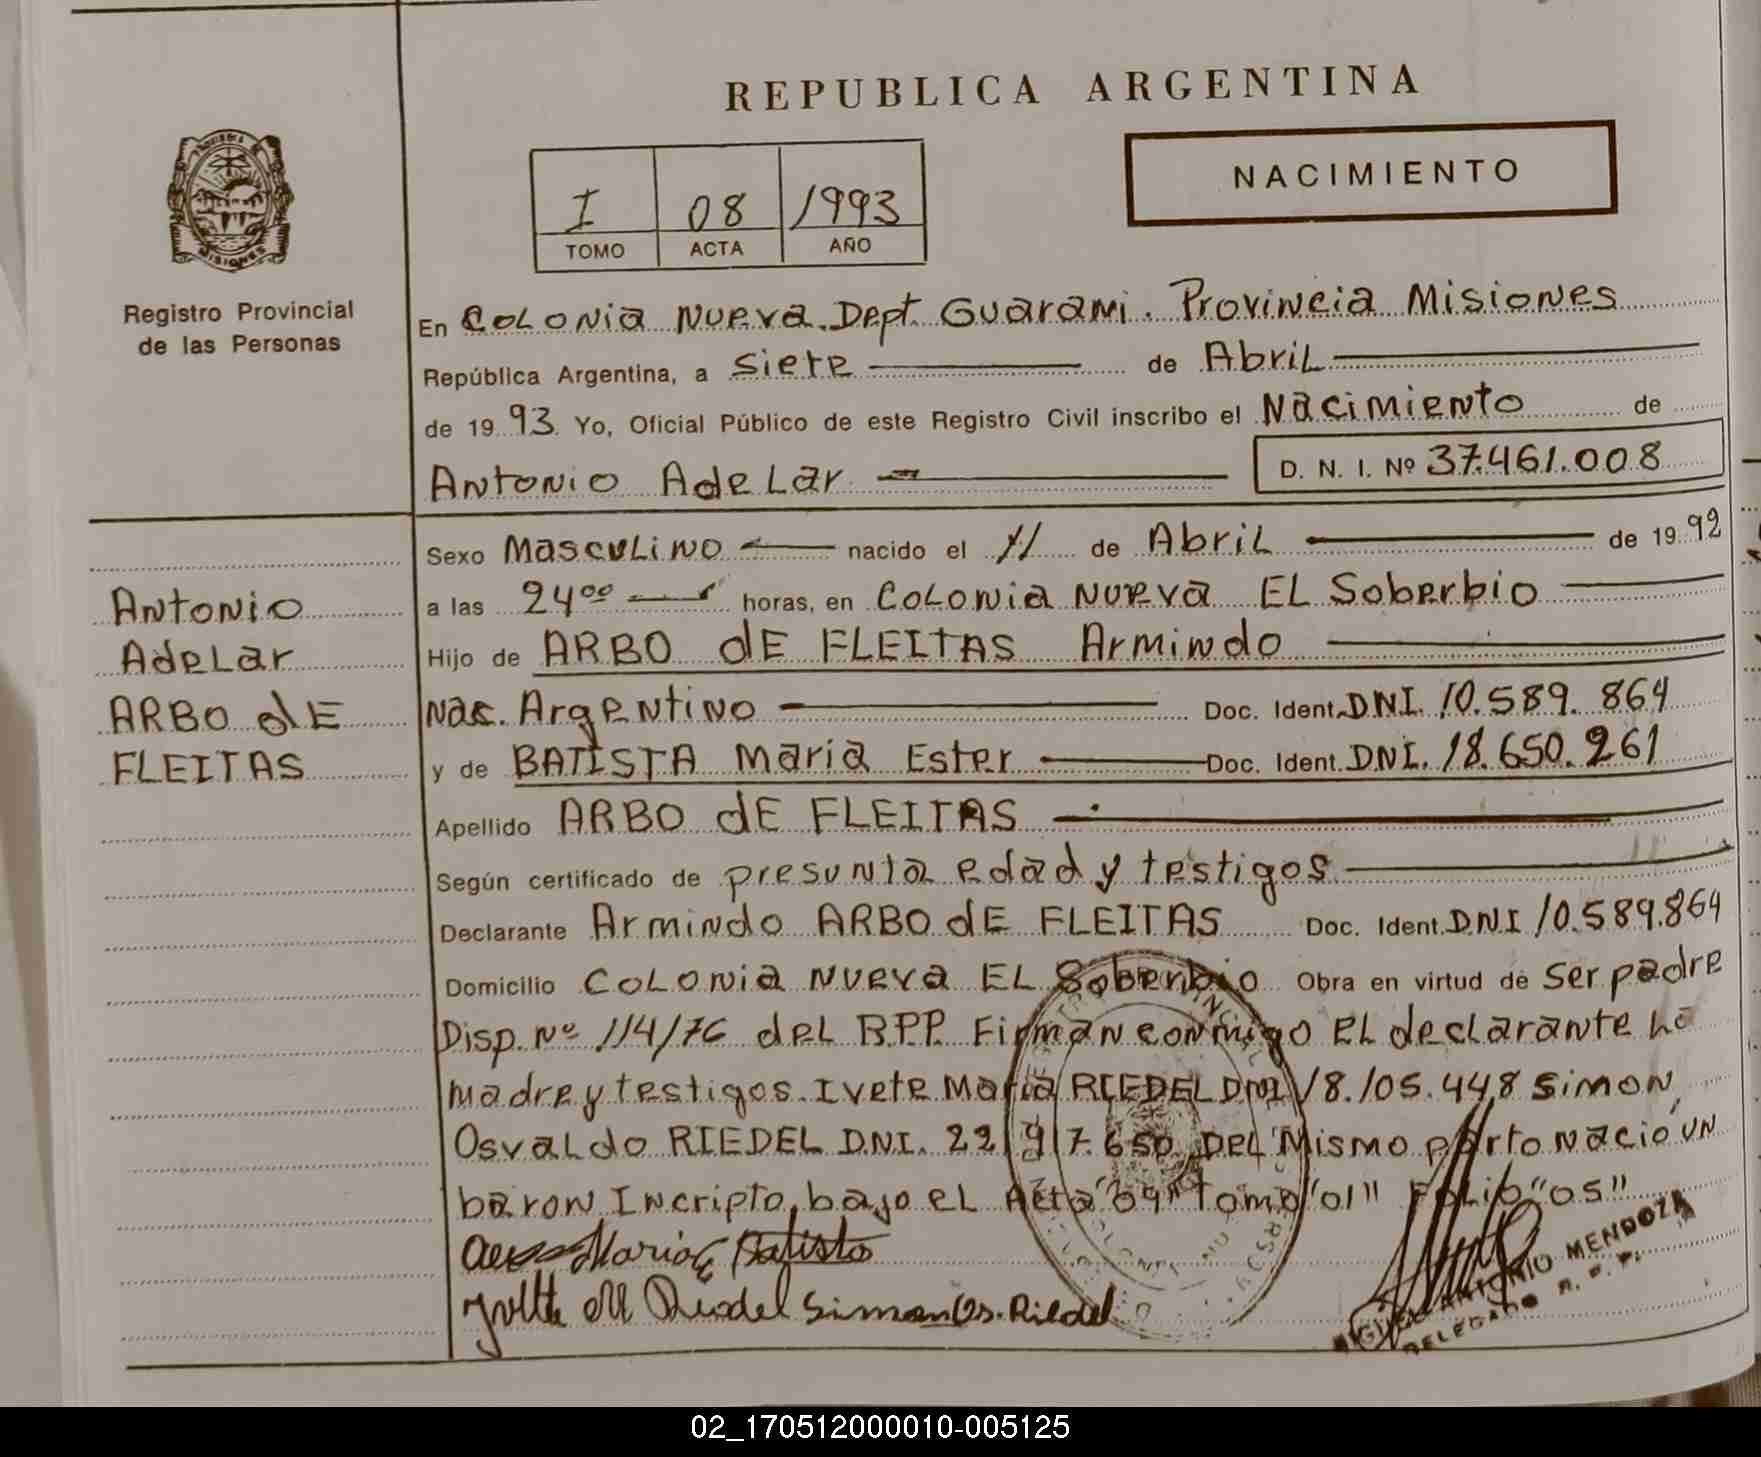 REPUBLICA ARGENTINA
NACIMIENTO
I 08 1993
TOMO ACTA AÑO
MISIONES
Registro Provincial
de las Personas
En COLONIA NUEVA. Dept. GUARANI. PROVINCIA MISIONES
República Argentina, a Siete de Abril
de 1993 Yo, Oficial Público de este Registro Civil inscribo el Nacimiento de
Antonio Adelar D. N. I. Nº 37.461.008
Sexo Masculino nacido el 11 de Abril de 1992
a las 24⁰⁰ horas, en Colonia Nueva EL Soberbio
Hijo de ARBO dE FLEITAS Armindo
Nac. Argentino Doc. Ident. DNI. 10.589.864
y de BATISTA Maria Ester Doc. Ident. DNI. 18.650.261
Apellido ARBO dE FLEITAS
Según certificado de presunta edad y testigos
Declarante Armindo ARBO dE FLEITAS Doc. Ident. DNI 10.589.864
Domicilio Colonia Nueva EL Soberbio Obra en virtud de Ser padre
Disp. Nº 114/76 del R.P.P. Firman conmigo EL declarante La
madre y testigos. Ivete Maria RIEDEL DNI 18.105.448 Simon
Osvaldo RIEDEL DNI. 22.917.650 DEL Mismo parto nació UN
baron Incripto bajo el Acta "09" Tomo "01" Folio "05"
Maria E Batista
M Riedel Simon Os. Riedel
MIGUEL ANTONIO MENDOZA
DELEGADO R. P. P.
Antonio
Adelar
ARBO dE
FLEITAS
02_170512000010-005125